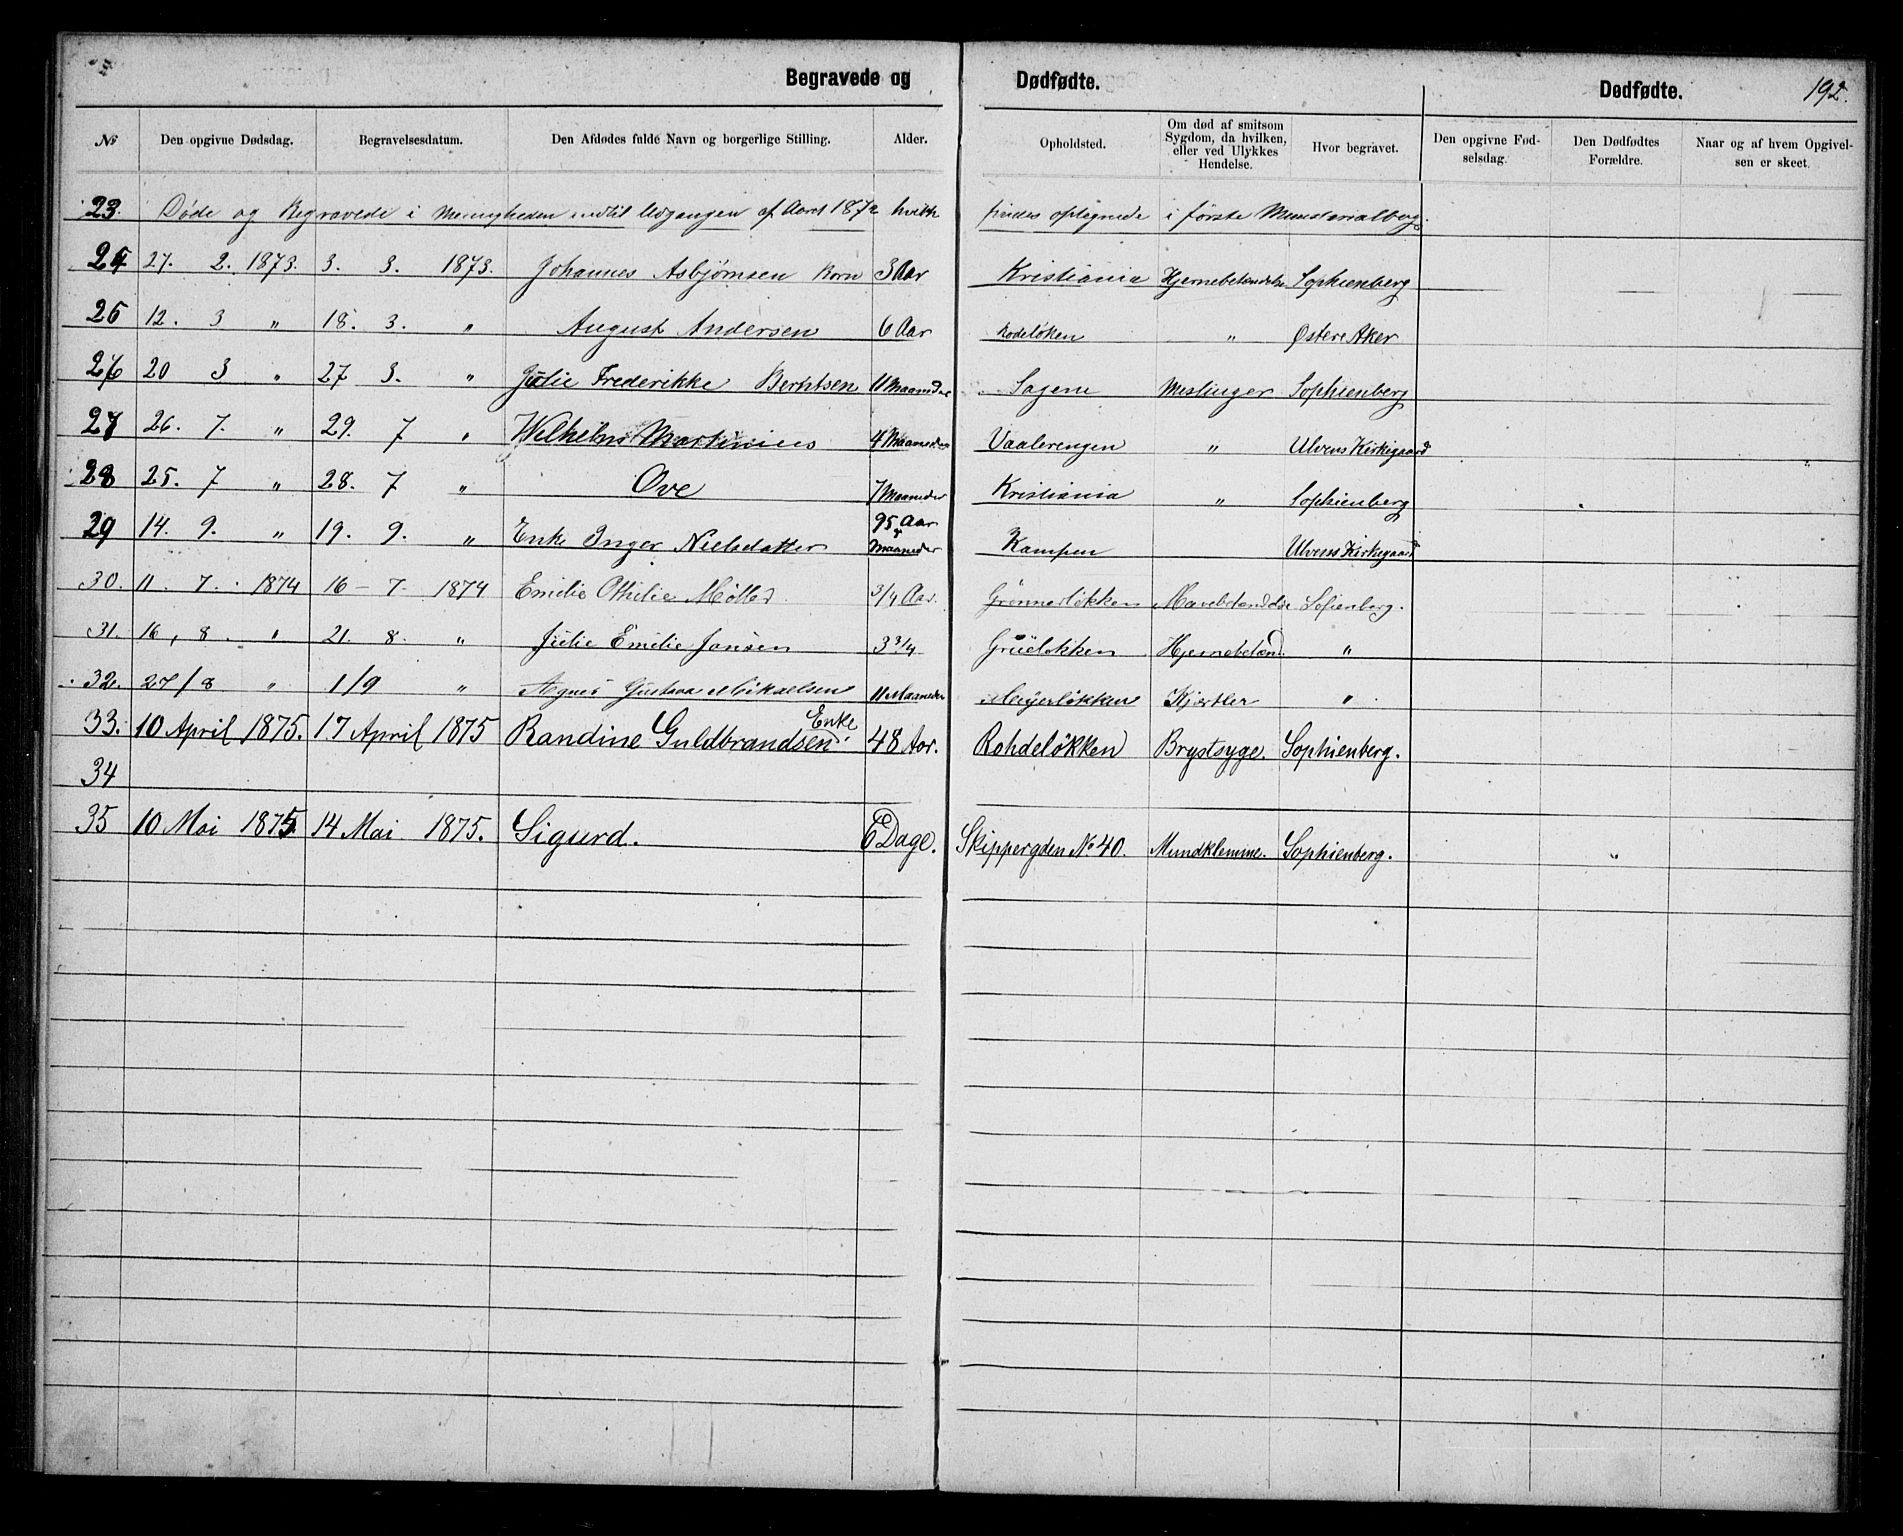 Begravede og Dødfødte. Dødfødte. 192.
No Den opgivne Dødsdag. Begravelsesdatum. Den Afdødes fulde Navn og borgerlige Stilling. Alder. Opholdsted. Om død af smitsom Sygdom, da hvilken, eller ved Ulykkes Hendelse. Hvor begravet. Den opgivne Fød-selsdag. Den Dødfødtes Forældre. Naar og af hvem Opgivel-sen er skeet.
23. Døde og Begravede i Menigheden indtil Udgangen af Aaret 1872 hvilke findes optegnede i første Ministerialbog.
24 27. 2. 1873. 3. 3. 1873. Johannes Asbjørnsen Korn 3 Aar Kristiania Hjernebetændelse Sophienberg
25 12. 3 " 18. 3. " August Andersen 6 Aar Rodeløken " Østere Aker
26 20 3 " 27 3. " Julie Frederikke Berntsen 11 Maaneder Sagene Meslinger Sophienberg
27 26. 7. " 29. 7 " Wilhelm Martinius 4 Maaneder Vaalerengen " Ulvens Kirkegaard
28 25. 7 " 28. 7 " Ove 7 Maaneder Kristiania " Sophienberg
29 14. 9. " 19. 9. " Enke Inger Nielsdatter 95 Aar Maaneder Kampen Ulvens Kirkegaard
30. 11. 7. 1874 16 - 7. 1874 Emilie Othilie Møller 3/4 Aar. Grønnerløkken Mavebetændelse Sofienberg.
31. 16, 8. " 21. 8. " Julie Emilie Jansen 3 3/4 Grüeløkken Hjernebetænd. "
32. 27/8 " 1/9 " Agnes Gustava Mikaelsen 11 Maaneder Meyerløkken Kjertler "
33. 10 April 1875. 17 April 1875 Randine Guldbrandsen Enke. 48 Aar. Rohdeløkken Brystsyge. Sophienberg.
34
35 10 Mai 1875 14 Mai 1875. Sigurd. 6 Dage. Skippergden No 40. Mundklemme. Sophienberg.